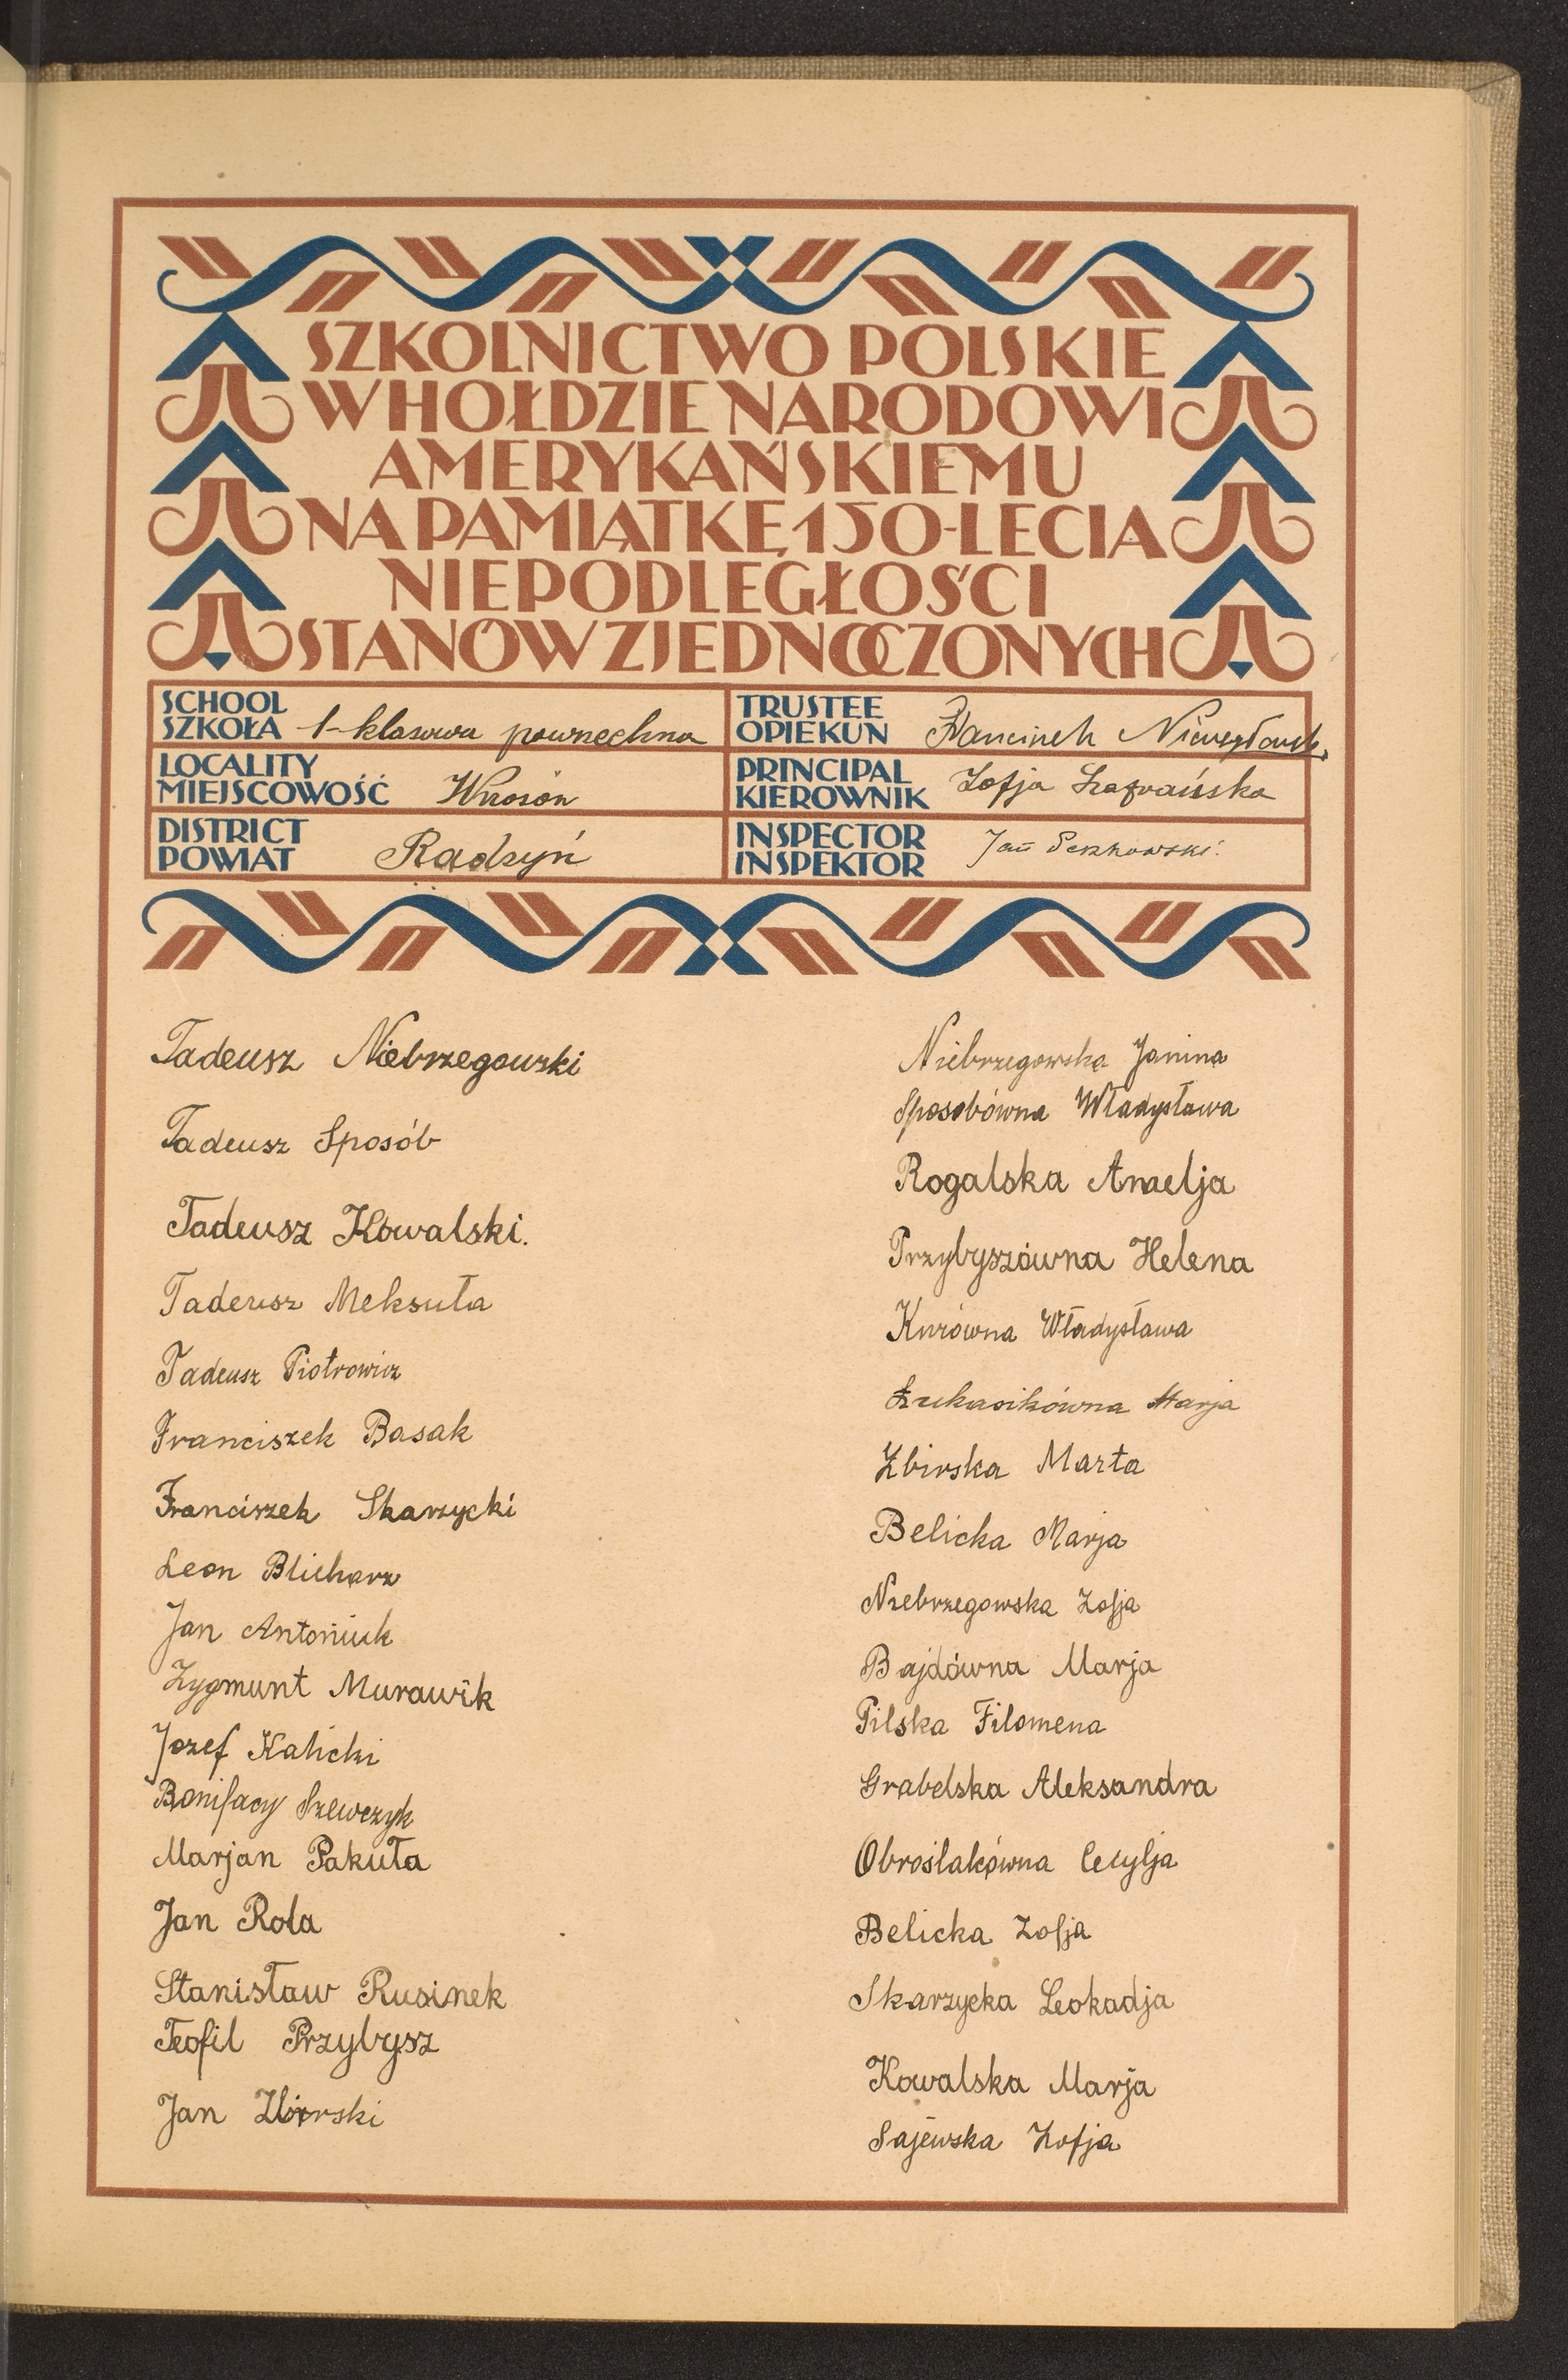 SZKOLNICTWO POLSKIE
W HOŁDZIE NARODOWI
AMERYKAŃSKIEMU
NA PAMIĄTKĘ 150-LECIA
NIEPODLEGŁOŚCI
STANÓW ZJEDNOCZONYCH
SCHOOL
SZKOŁA 1-klasowa powszechna
LOCALITY
MIEJSCOWOŚĆ Wrzosów
DISTRICT
POWIAT Radzyń
TRUSTEE
OPIEKUN Franciszek
PRINCIPAL
KIEROWNIK Zofja Szafrańska
INSPECTOR
INSPEKTOR Jan
Tadeusz Niebrzegowski
Tadeusz Sposób
Tadeusz Kowalski.
Tadeusz Meksuła
Tadeusz Piotrowicz
Franciszek Basak
Franciszek Skarzycki
Leon Blicharz
Jan Antoniuk
Zygmunt Murawik
Jozef Kalicki
Bonifacy Szewczyk
Marjan Pakuła
Jan Rola
Stanisław Rusinek
Teofil Przybysz
Jan Zbirski
Niebrzegowska Janina
Sposobówna Władysława
Rogalska Amelja
Przybyszówna Helena
Kurówna Władysława
Łukasikówna Marja
Zbirska Marta
Belicka Marja
Niebrzegowska Zofja
Bajdówna Marja
Pilska Filomena
Grabelska Aleksandra
Obroślakówna Cecylja
Belicka Zofja
Skarzycka Leokadja
Kowalska Marja
Sajewska Zofja